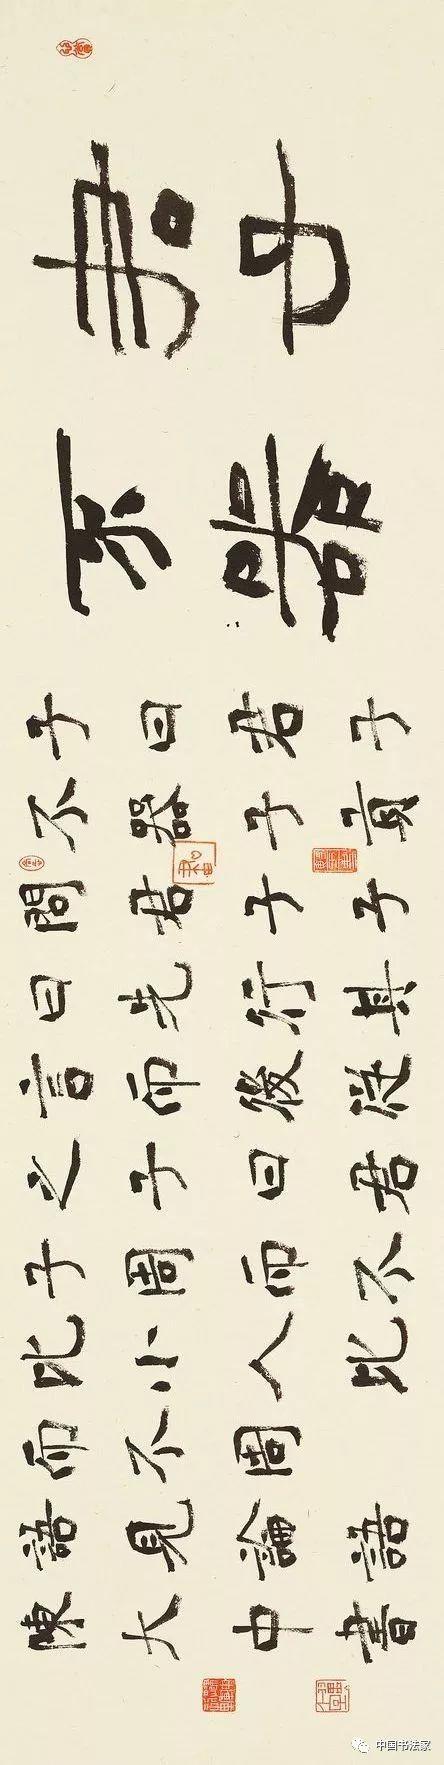 君子
不器
子曰君子
不器子貢
問君子子
曰先行其
言而後從
之子曰君
子周而不
比小人比
而不周
語見論語
陳大中書
中国书法家